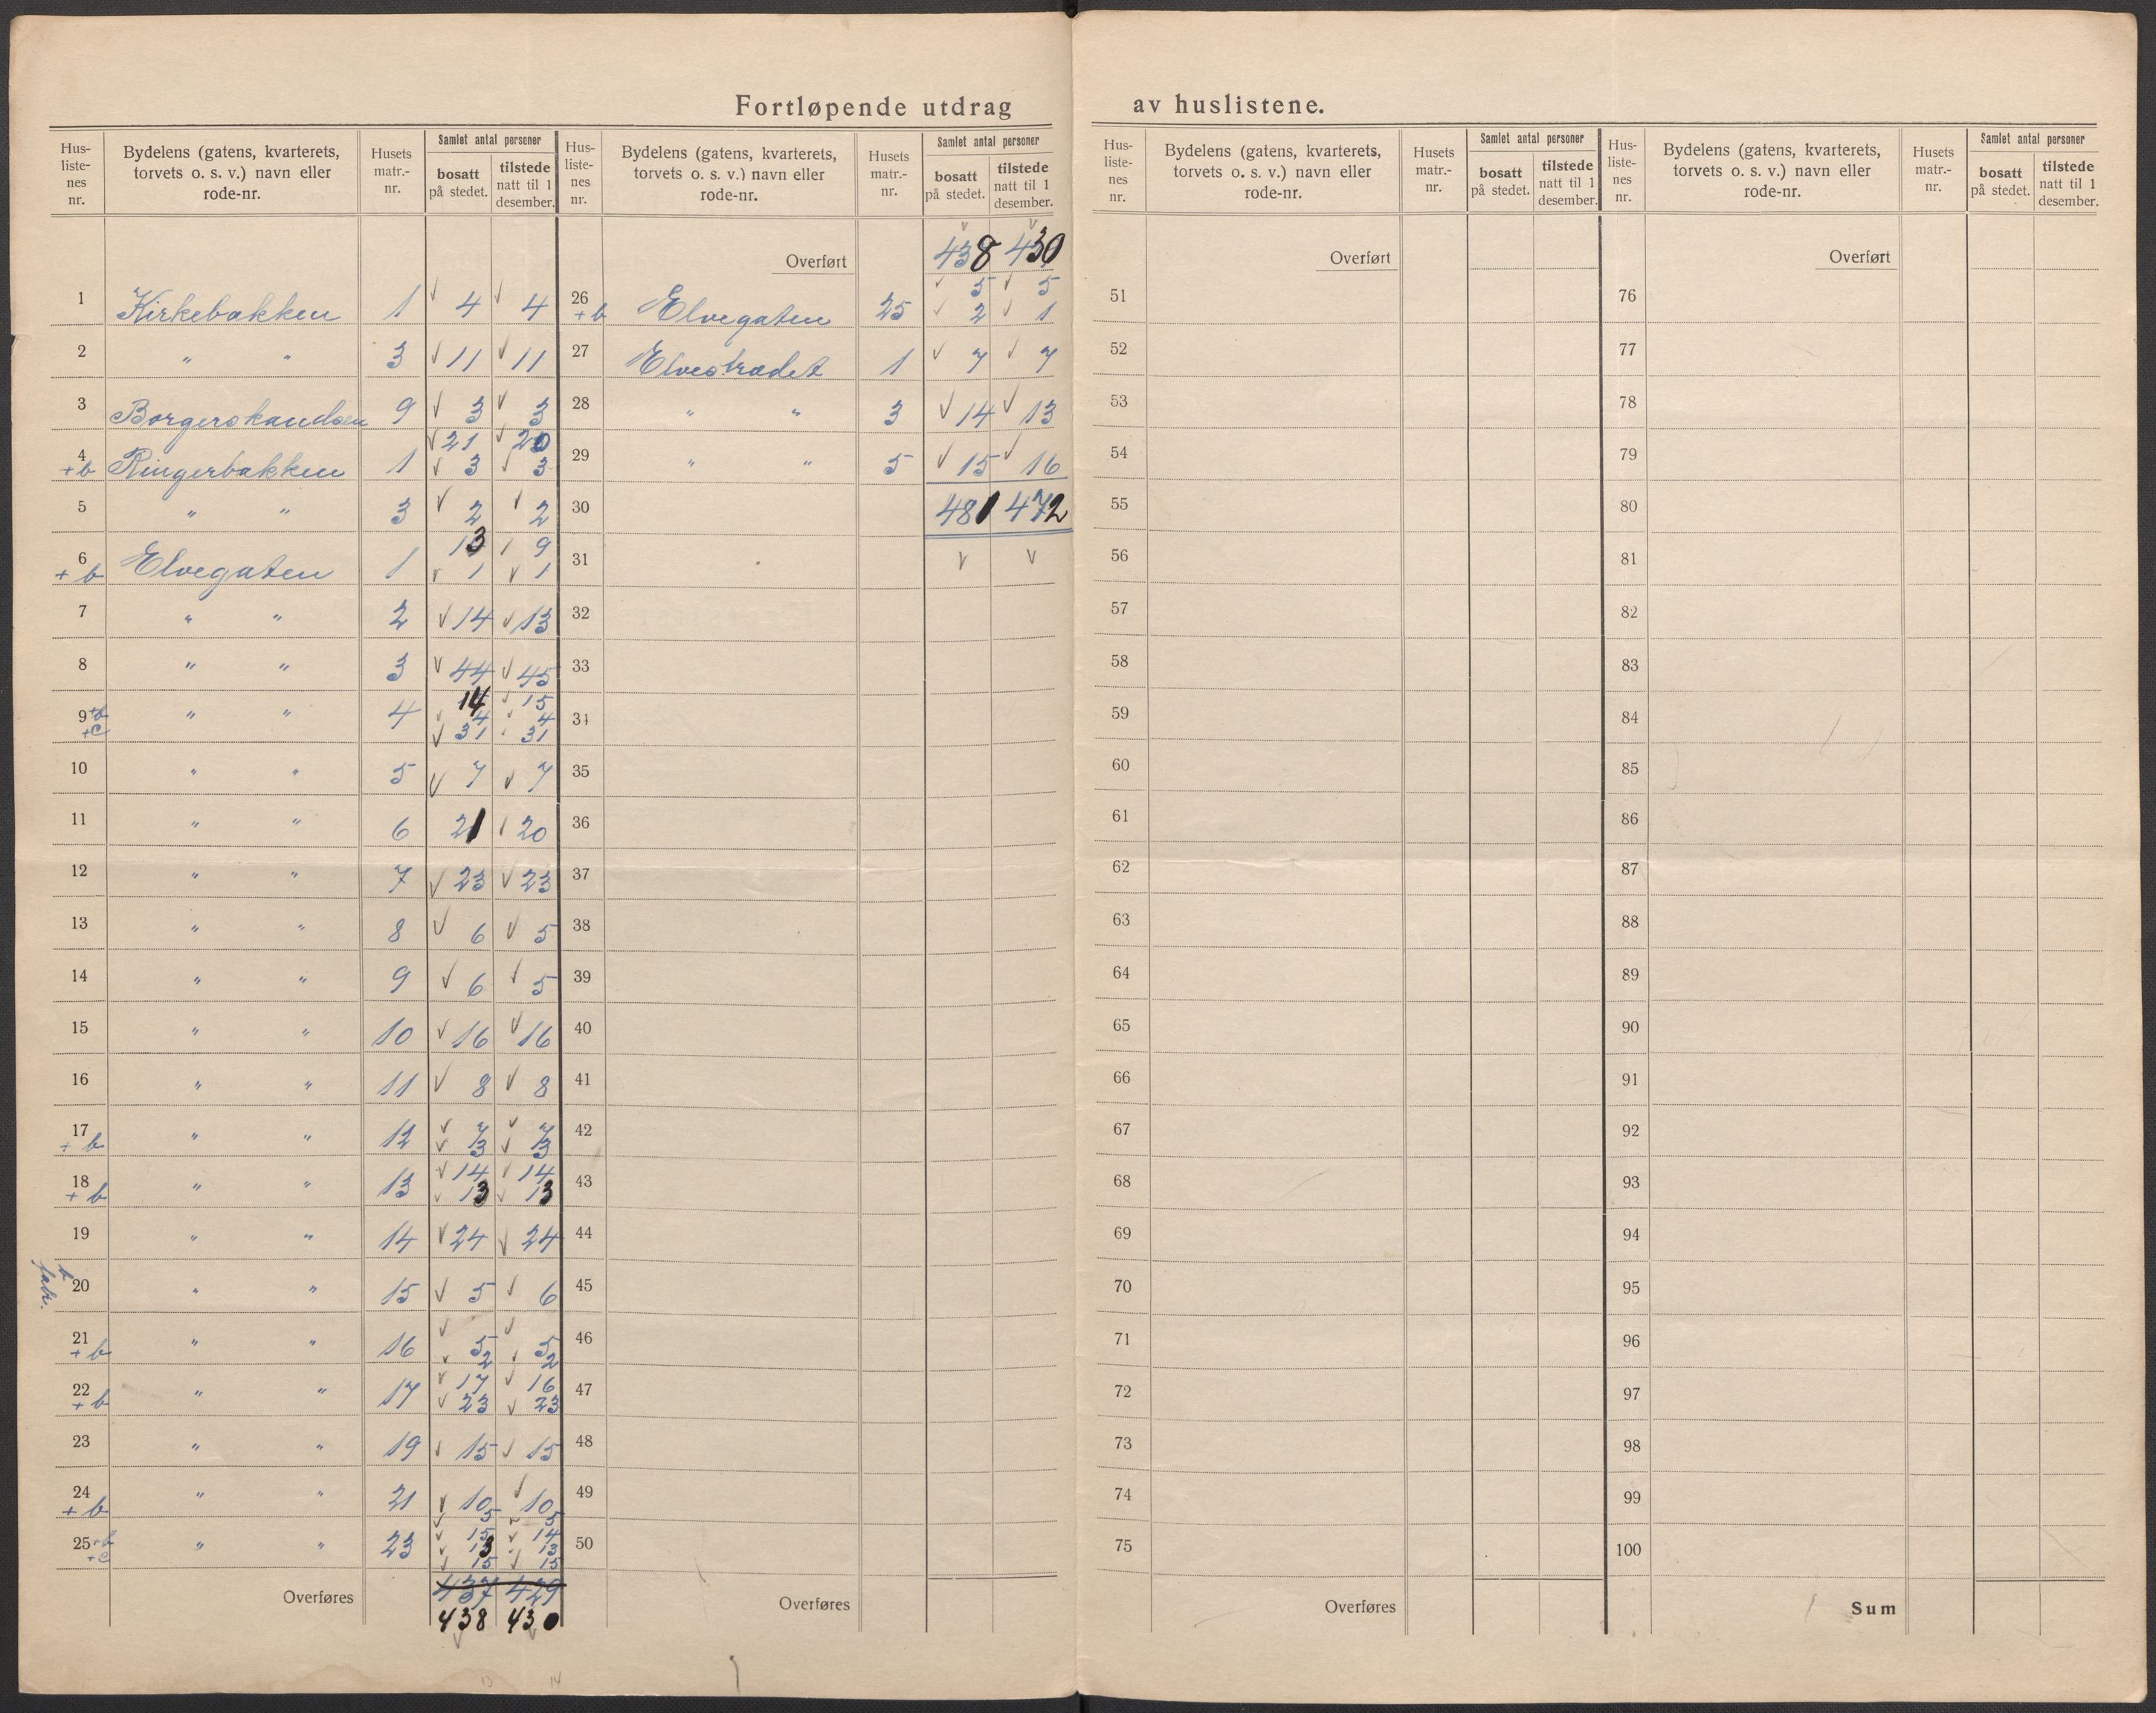 Fortløpende utdrag av huslistene.
Hus-listenes nr. | Bydelens (gatens, kvarterets, torvets o. s. v.) navn eller rode-nr. | Husets matr.-nr. | Samlet antal personer bosatt på stedet. | tilstede natt til 1 desember.
1 Kirkebakken 1 4 4
2 " " 3 11 11
3 Borgerskandsen 9 3 3
4 +b Ringerbakken 1 21 20
3 3
5 " " 3 2 2
6 +b Elvegaten 1 13 9
1 1
7 " " 2 14 13
8 " " 3 44 45
9 +b +c " " 4 14 15
4 4
31 31
10 " " 5 7 7
11 " " 6 21 20
12 " " 7 23 23
13 " " 8 6 5
14 " " 9 6 5
15 " " 10 16 16
16 " " 11 8 8
17 +b " " 12 7 7
3 3
18 +b " " 13 14 14
13 13
19 " " 14 24 24
20 " " 15 5 6
21 +b " " 16 5 5
2 2
22 +b " " 17 17 16
23 23
23 " " 19 15 15
24 +b " " 21 10 10
5 5
25 +b +c " " 23 15 14
13 13
15 15
Overføres 437 429
438 430
Hus-listenes nr. | Bydelens (gatens, kvarterets, torvets o. s. v.) navn eller rode-nr. | Husets matr.-nr. | Samlet antal personer bosatt på stedet. | tilstede natt til 1 desember.
Overført 438 430
26 +b Elvegaten 25 5 5
2 1
27 Elvestrædet 1 7 7
28 " " 3 14 13
29 " " 5 15 16
30 481 472
31
32
33
34
35
36
37
38
39
40
41
42
43
44
45
46
47
48
49
50
Overføres
Hus-listenes nr. | Bydelens (gatens, kvarterets, torvets o. s. v.) navn eller rode-nr. | Husets matr.-nr. | Samlet antal personer bosatt på stedet. | tilstede natt til 1 desember.
Overført
51
52
53
54
55
56
57
58
59
60
61
62
63
64
65
66
67
68
69
70
71
72
73
74
75
Overføres
Hus-listenes nr. | Bydelens (gatens, kvarterets, torvets o. s. v.) navn eller rode-nr. | Husets matr.-nr. | Samlet antal personer bosatt på stedet. | tilstede natt til 1 desember.
Overført
76
77
78
79
80
81
82
83
84
85
86
87
88
89
90
91
92
93
94
95
96
97
98
99
100
Sum
13 14